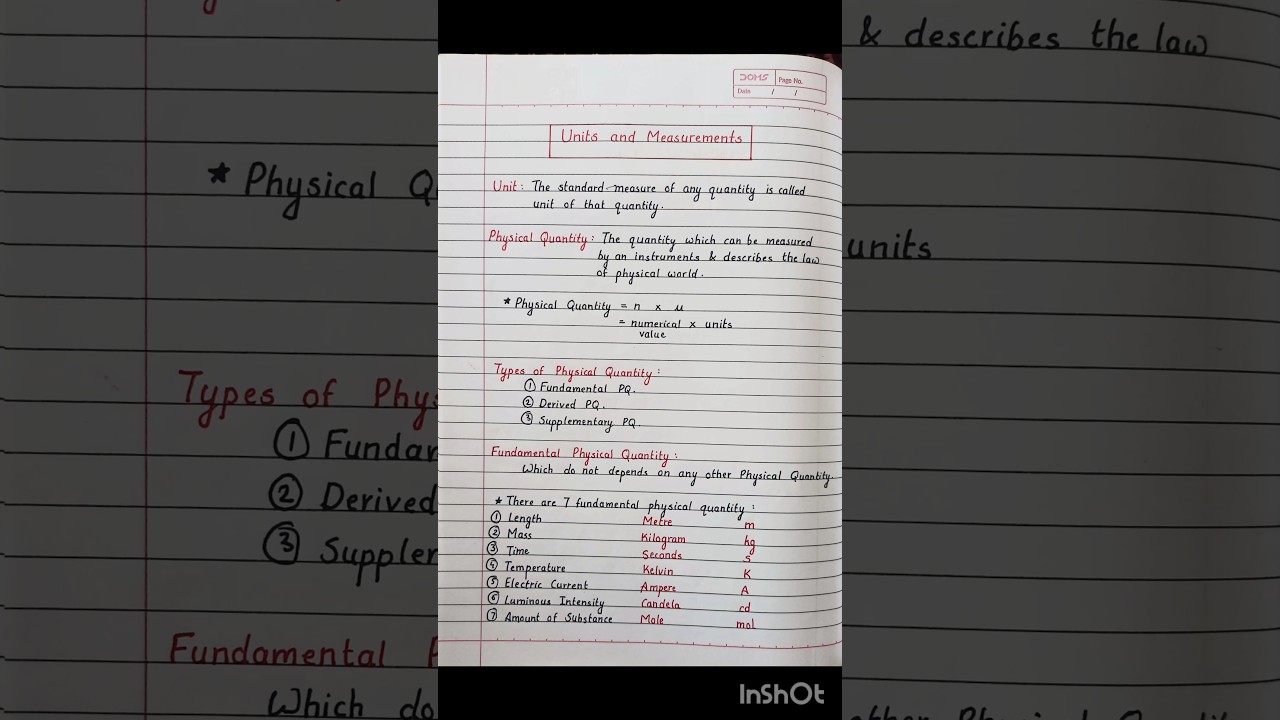 DOMS Page No.
Date / /
Units and Measurements
Unit : The standard measure of any quantity is called
unit of that quantity.
Physical Quantity : The quantity which can be measured
by an instruments & describes the law
of physical world.
* Physical Quantity = n x u
= numerical x units
value
Types of Physical Quantity :
① Fundamental PQ.
② Derived PQ.
③ Supplementary PQ.
Fundamental Physical Quantity :
Which do not depends on any other Physical Quantity.
* There are 7 fundamental physical quantity :
① Length Metre m
② Mass Kilogram kg
③ Time Seconds s
④ Temperature Kelvin K
⑤ Electric Current Ampere A
⑥ Luminous Intensity Candela cd
⑦ Amount of Substance Mole mol
& describes the law
* Physical Q
units
Types of Phys
① Fundam
② Derived
③ Supplem
Fundamental P
Which do
other Physical Quantity
InShOt